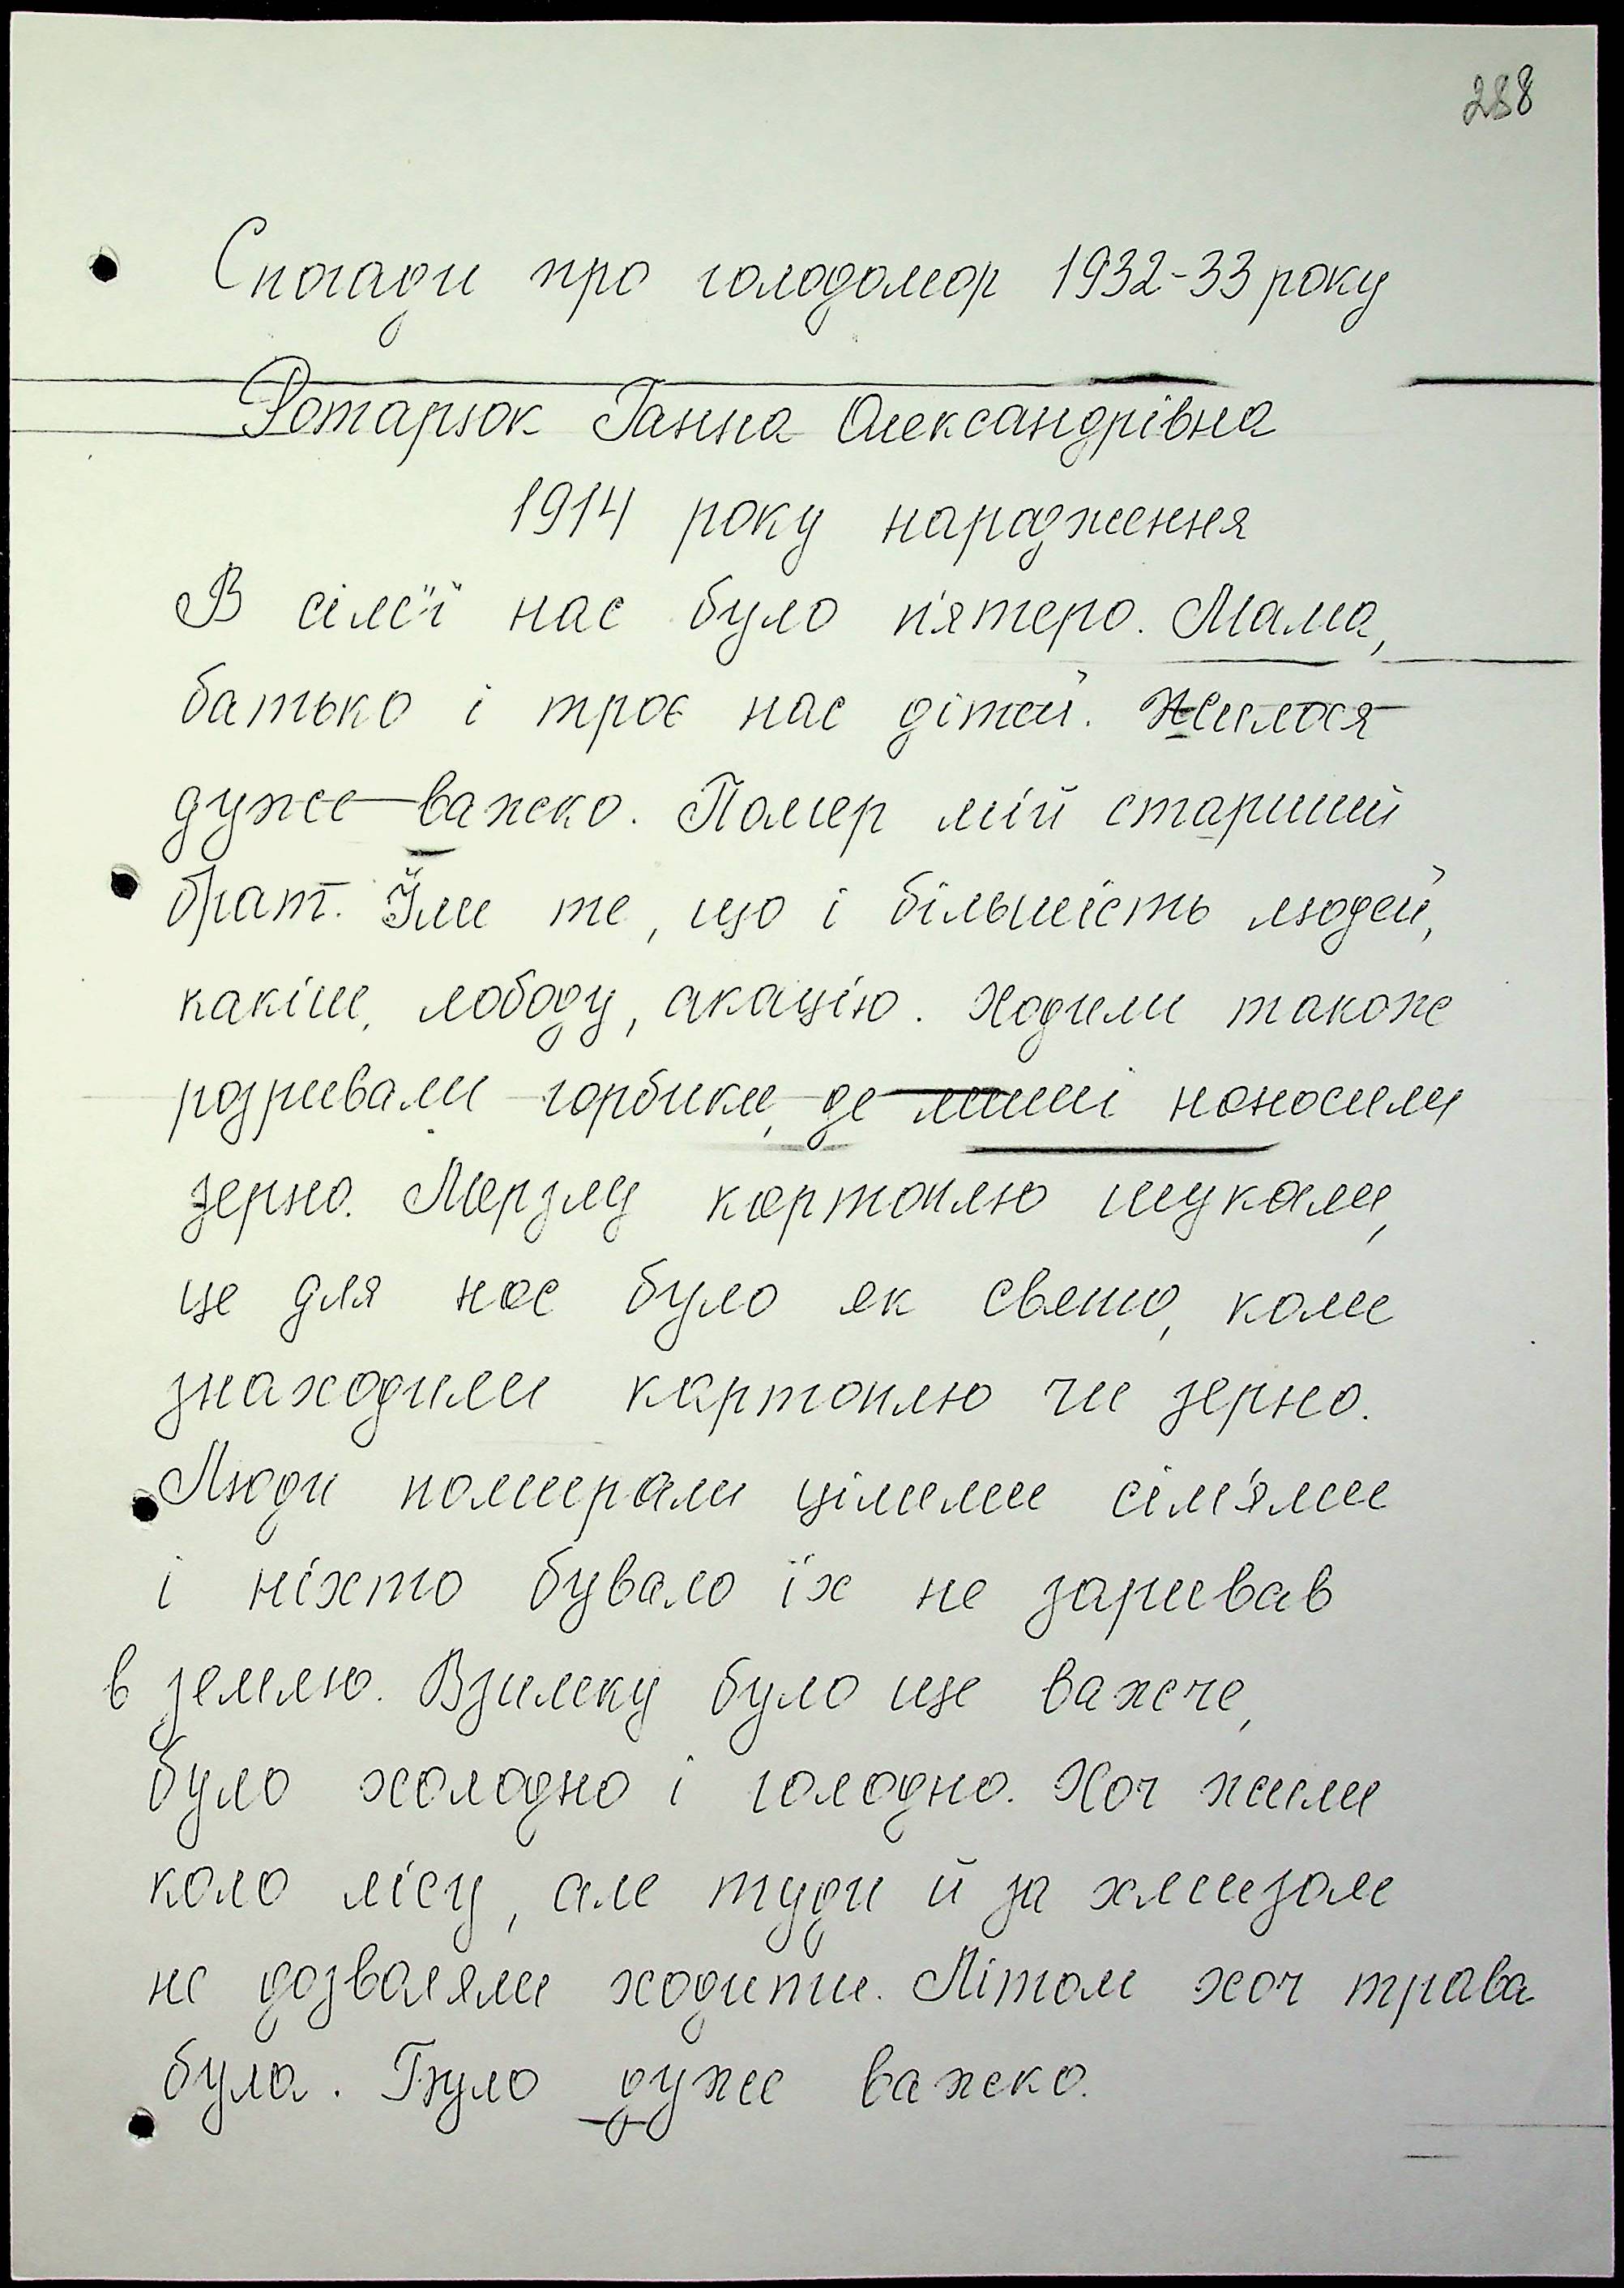 288
Спогади про голодомор 1932-33 року
Ротарюк Ганна Олександрівна
1914 року народження
В сім'ї нас було п'ятеро. Мама,
батько і троє нас дітей. Жилося
дуже важко. Помер мій старший
брат. Їли те, що і більшість людей,
какіш, лободу, акацію. Ходили також
розривали горбики, де миші наносили
зерно. Мерзлу картоплю шукали,
це для нас було як свято, коли
знаходили картоплю чи зерно.
Люди помирали цілими сім'ями
і ніхто бувало їх не заривав
в землю. Взимку було ще важче,
було холодно і голодно. Хоч жили
коло лісу, але туди й за хмизом
не дозваляли ходити. Літом хоч трава
була. Було дуже важко.